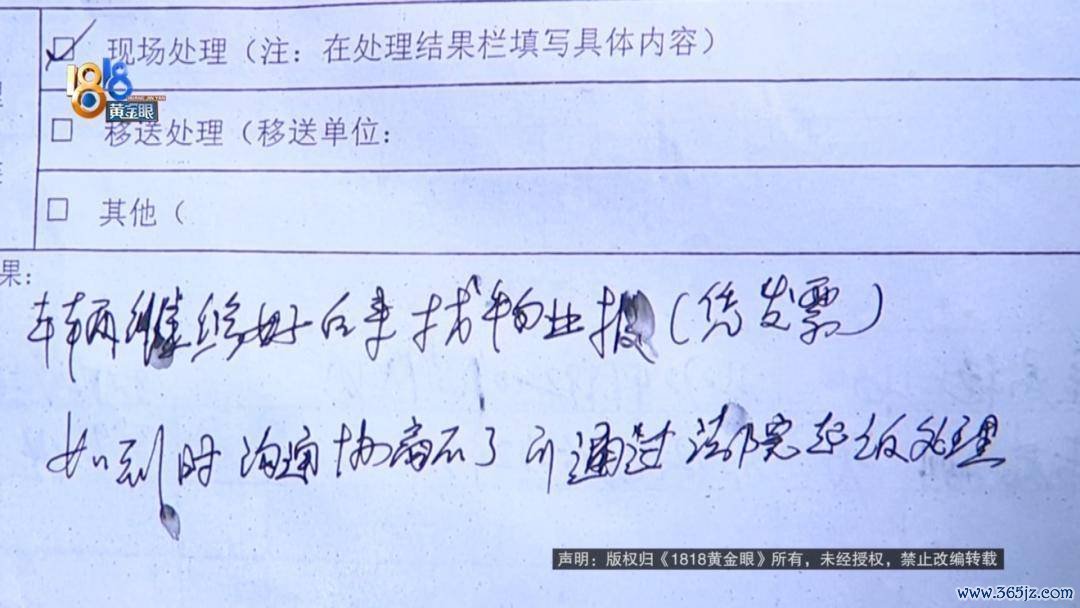 现场处理（注：在处理结果栏填写具体内容）
1818
黄金眼
移送处理（移送单位：
其他（
果：
车辆维修好后来找物业报（凭发票）
如到时沟通协商不了可通过法院起诉处理
声明：版权归《1818黄金眼》所有，未经授权，禁止改编转载
www.365jz.com